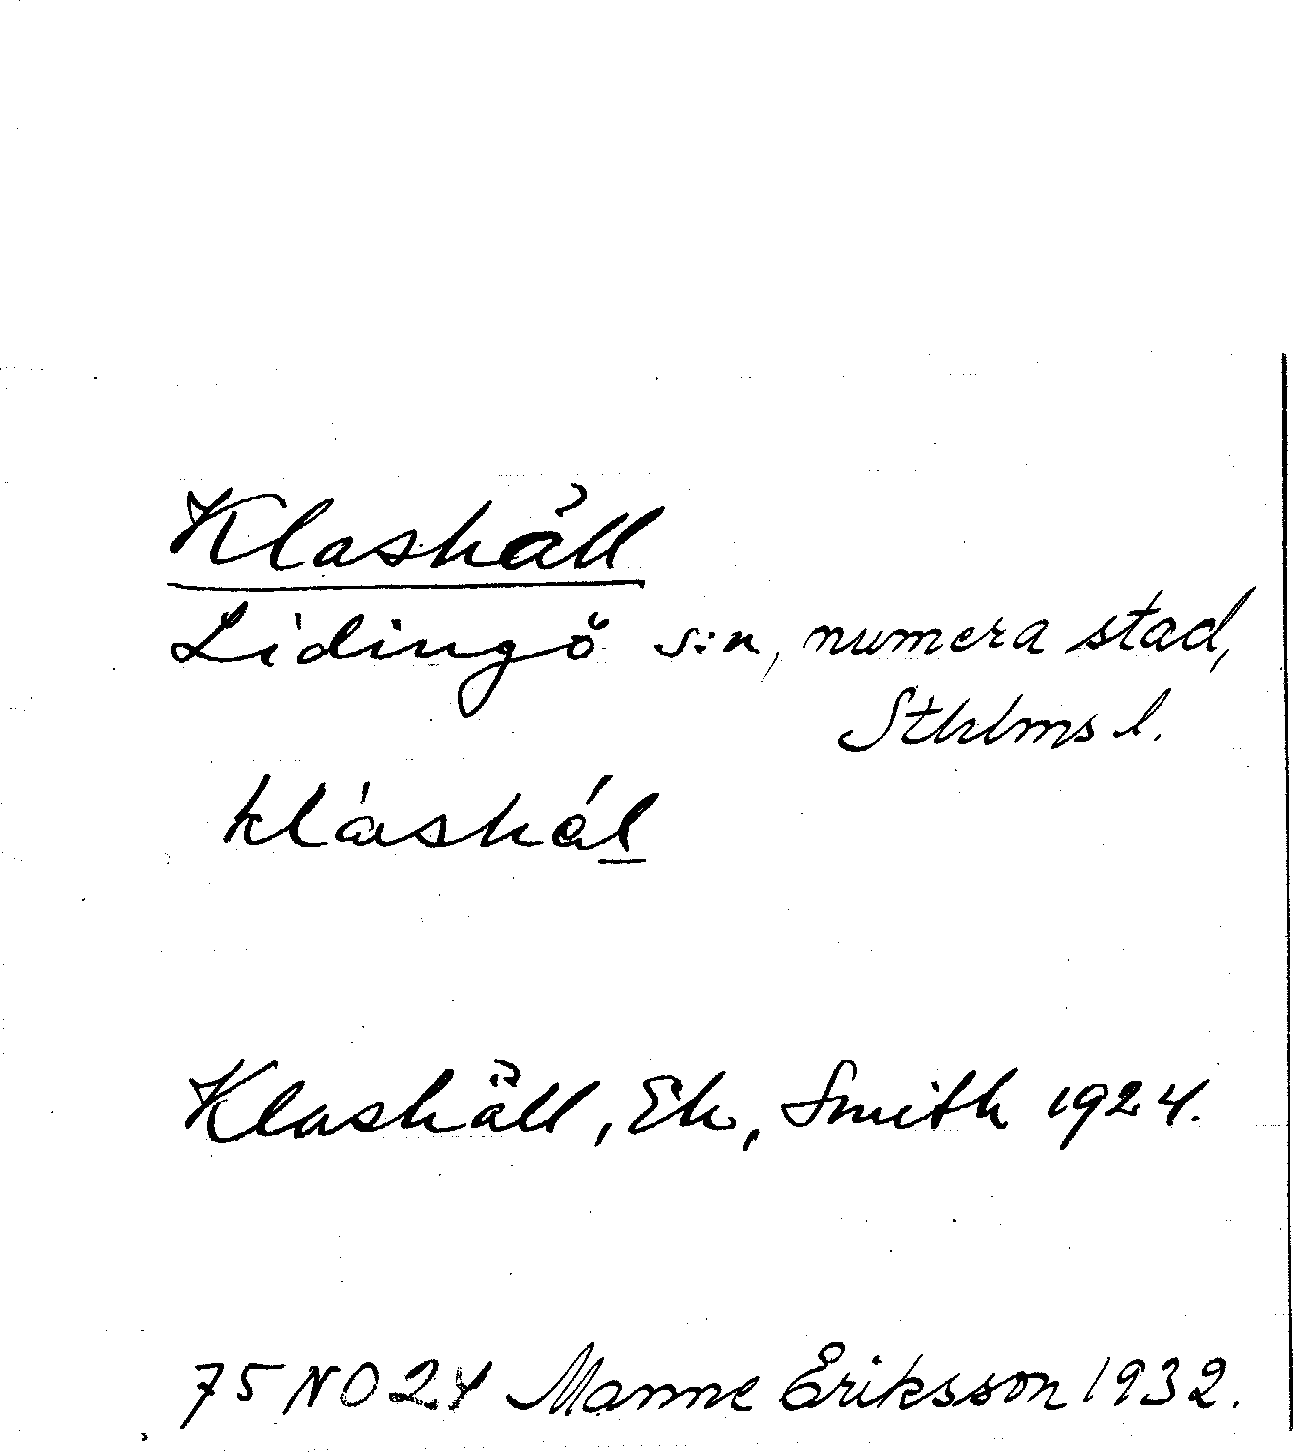 Klashäll
Lidingö s:n, numera stad,
Sthlms l.
klàskál
Klashäll, Ek, Smith 1924.
75 NO 24 Manne Eriksson 1932.